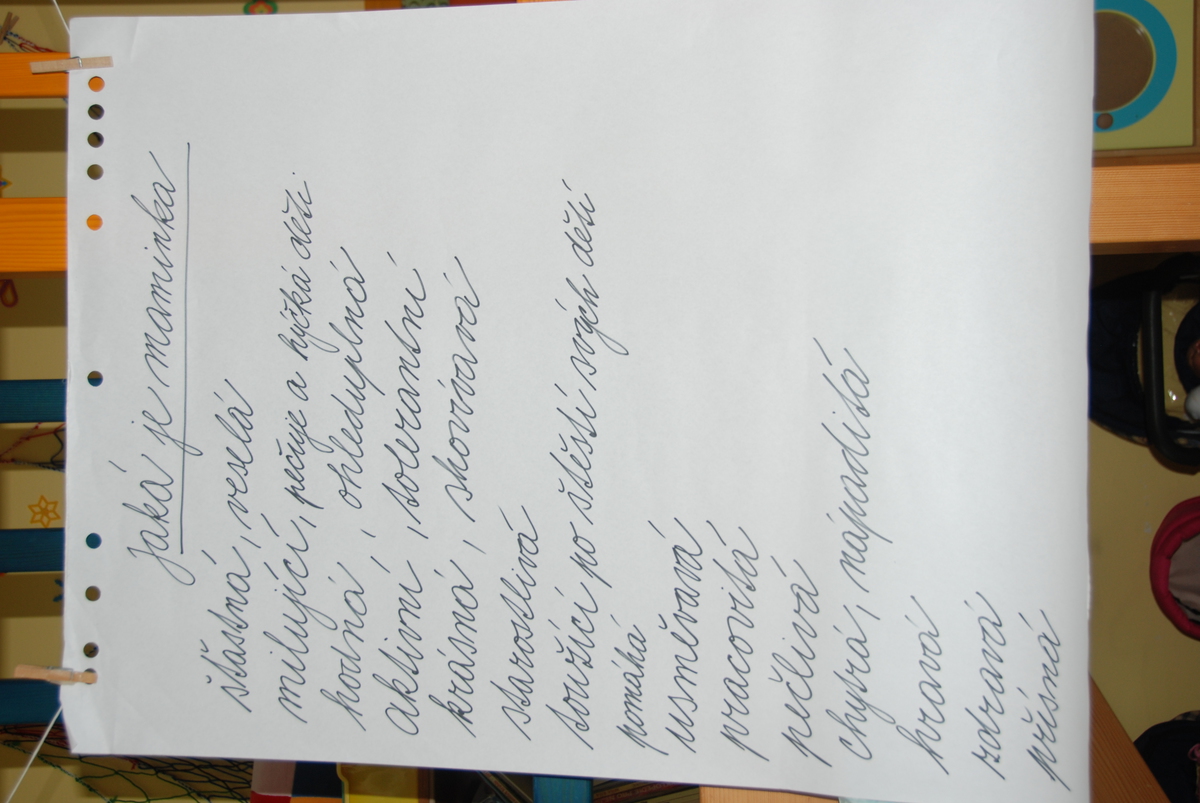 Jaká je maminka
šťastná, veselá
milující, pečuje a hýčká děti.
hodná, ohleduplná
aktivní, tolerantní
krásná, shovívavá
starostlivá
toužící po štěstí svých dětí
pomáhá
usměvavá
pracovitá
pečlivá
chytrá, nápaditá
hravá
zdravá
přísná